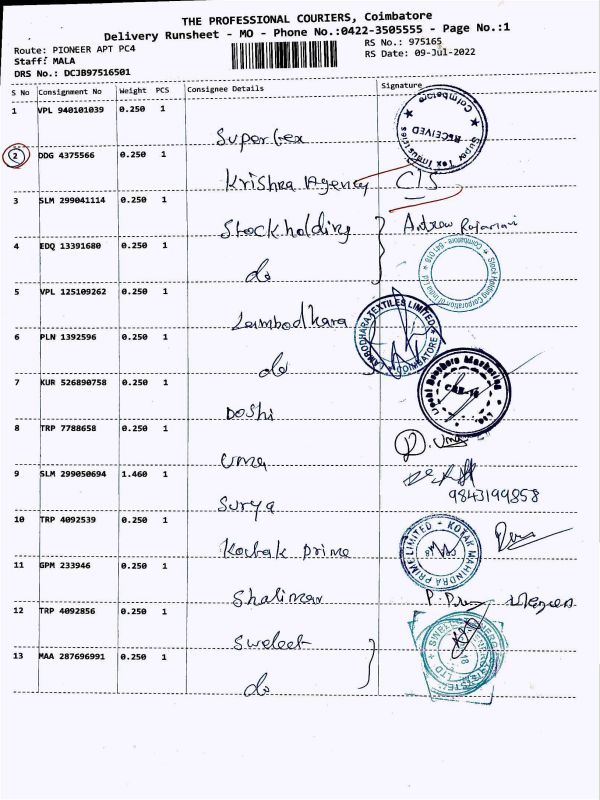 THE PROFESSIONAL COURIERS, Coimbatore
Delivery Runsheet - MO - Phone No.:0422-3505555 - Page No.:1
Route: PIONEER APT PC4
RS No.: 975165
Staff: MALA
RS Date: 09-Jul-2022
DRS No.: DCJB97516501
S No Consignment No Weight PCS Consignee Details Signature
1 VPL 940101039 0.250 1
Supertex
Super Tex Industries ★ Coimbatore ★ RECEIVED
2 DDG 4375566 0.250 1
Krishna Agency CIS
3 SLM 299041114 0.250 1
Stockholding Andrew
4 EDQ 13391680 0.250 1
do
Stock Holding Corporation of India Ltd ★ Coimbatore - 641 018 ★
5 VPL 125109262 0.250 1
Lambodhara
LAMBODHARA TEXTILES LIMITED ★ COIMBATORE ★
6 PLN 1392596 0.250 1
do
7 KUR 526890758 0.250 1
Doshi
Doshi Brothers Marketing
8 TRP 7788658 0.250 1
Uma D. Uma
9 SLM 299050694 1.460 1
Surya
9843199858
10 TRP 4092539 0.250 1
Kotak Prime
KOTAK MAHINDRA PRIME LIMITED
11 GPM 233946 0.250 1
Shalimar
12 TRP 4092856 0.250 1
Swelect
13 MAA 287696991 0.250 1
do